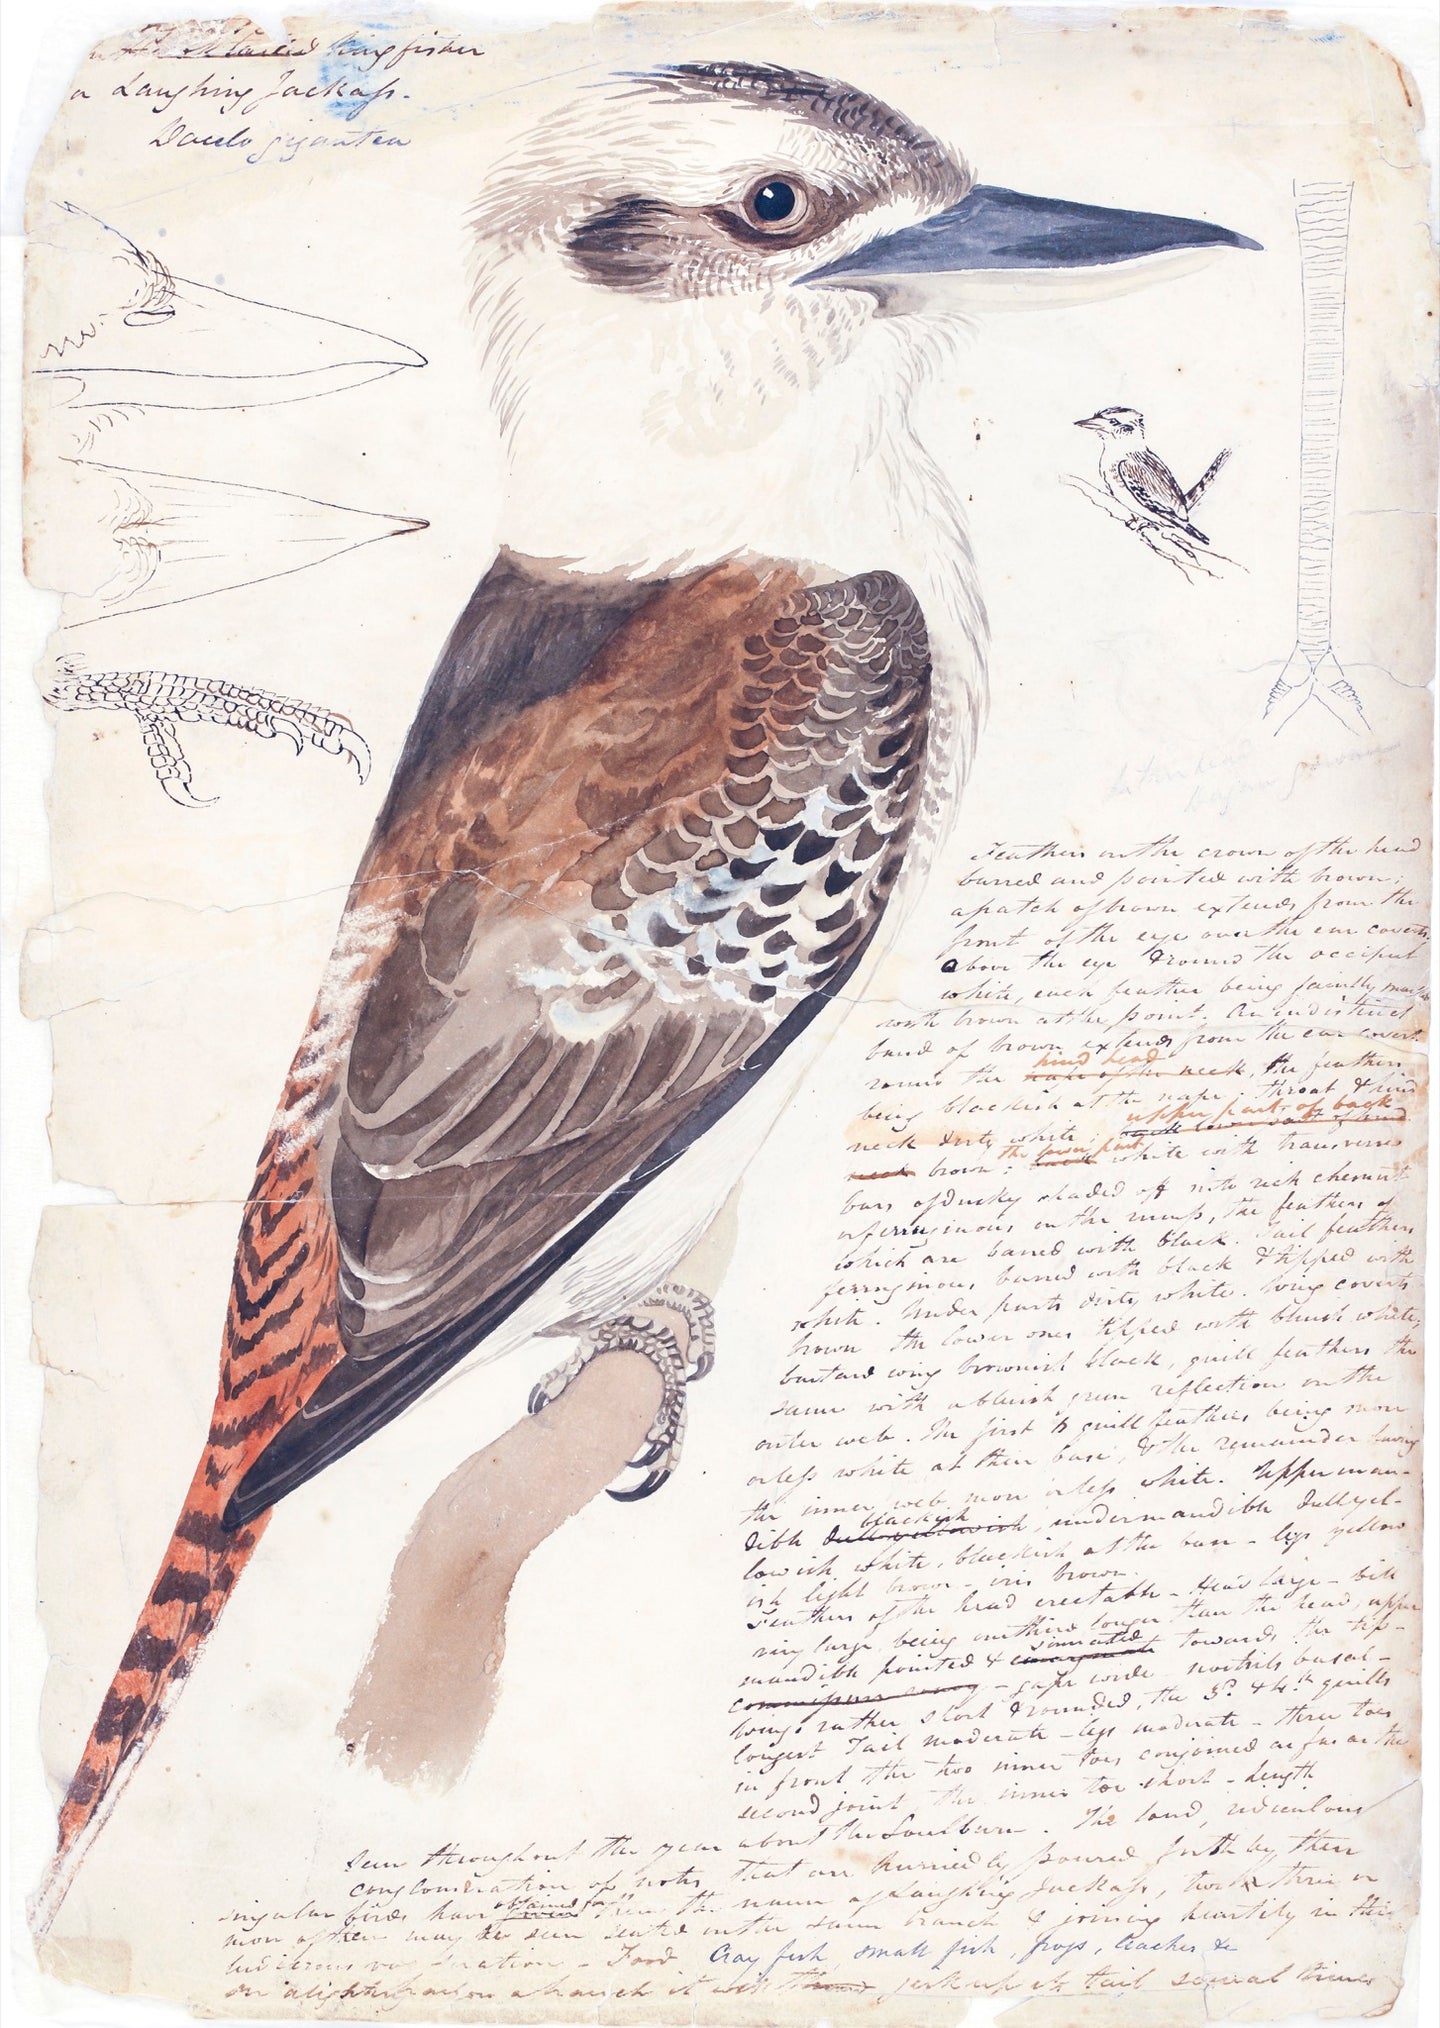 Kingfisher
or Laughing Jackass.
Dacelo gigantea
Feathers on the crown of the head
barred and pointed with brown;
a patch of brown extends from the
front of the eye over the ear coverts.
above the eye & round the occiput
white, each feather being faintly
with brown at the point. An indistinct
band of brown extends from the ear covert
hind head
round the nape of the neck, the feathers
being blackish at the nape; throat &
upper part of back
neck dirty white;
the lower part
neck brown; back white with transverse
bars of dusky shaded off into rich chesnut
or ferruginous on the rump, the feathers of
which are barred with black. Tail feathers
ferruginous, barred with black & tipped with
white. Under parts dirty white. Wing coverts
brown the lower ones tipped with bluish white,
bastard wing brownish black, quill feathers the
same with a bluish green reflection on the
outer web. The first quill feathers being more
or less white at their base, & the remainder having
the inner web more or less white. Upper man-
blackish
dible dull yellowish, undermandible dull yel-
lowish white, blackish at the base - legs yellow
ish light brown - iris brown.
Feathers of the head erectable - Head large - bill
very large, being one third longer than the head, upper
sinuated
mandible pointed & emarginate towards the tip -
gape wide - nostrils basal -
wings rather short & rounded, the 3d & 4th quills
longest Tail moderate - legs moderate - three toes
in front the two inner toes conjoined as far as the
second joint, the inner toe short - length
Seen throughout the year about the Goulburn. The loud, ridiculous
conglomeration of notes that are hurriedly poured forth by these
obtained for
singular birds have given them the name of Laughing Jackass, two or three or
more of them may be seen seated on the same branch & joining heartily in this
ludicrous vociferation - Food Cray fish, small fish, frogs, leaches &c
On alighting upon a branch it will jerk up its tail several times